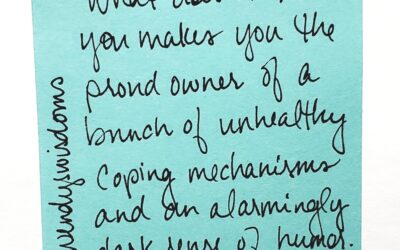 What
you makes you the
proud owner of a
bunch of unhealthy
coping mechanisms
and an alarmingly
dark sense of humor.
wendyswisdoms